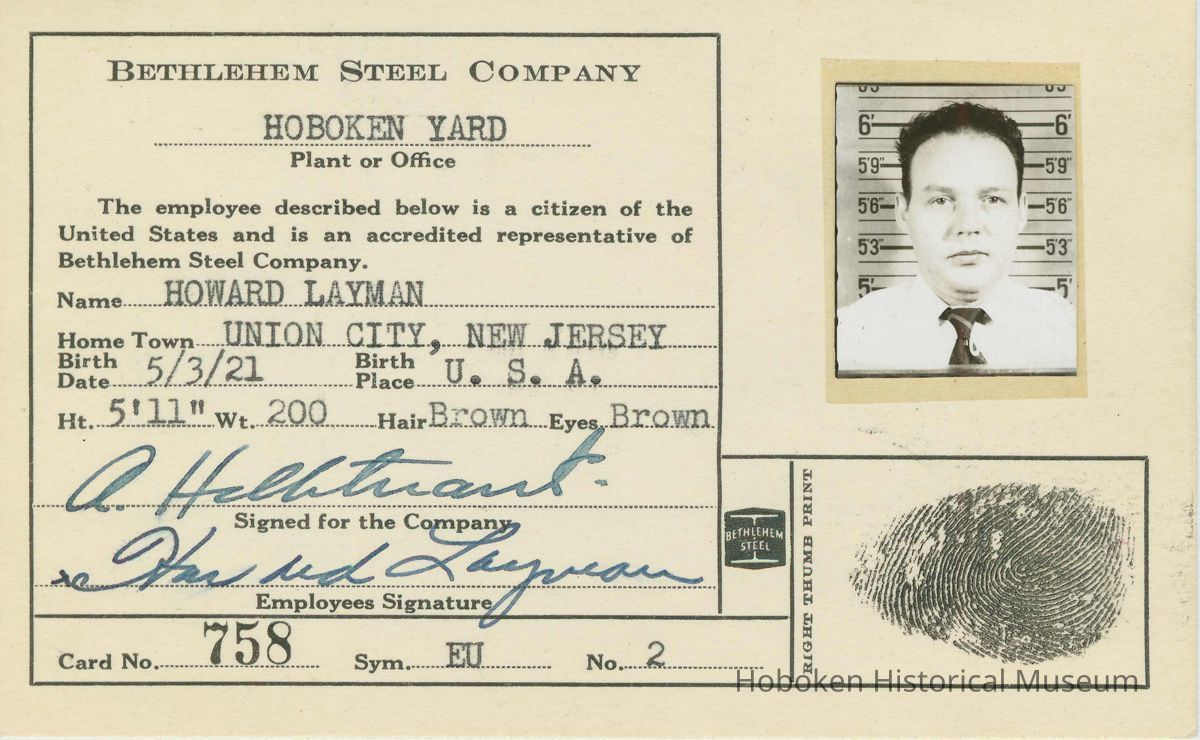 BETHLEHEM STEEL COMPANY
HOBOKEN YARD
Plant or Office
The employee described below is a citizen of the
United States and is an accredited representative of
Bethlehem Steel Company.
Name HOWARD LAYMAN
Home Town UNION CITY, NEW JERSEY
Birth Date 5/3/21 Birth Place U. S. A.
Ht. 5'11" Wt. 200 Hair Brown Eyes Brown
Signed for the Company
x Howard Layman
Employees Signature
Card No. 758 Sym. EU No. 2
6' 6'
5'9" 5'9"
5'6" 5'6"
5'3" 5'3"
5' 5'
BETHLEHEM
STEEL
RIGHT THUMB PRINT
Hoboken Historical Museum